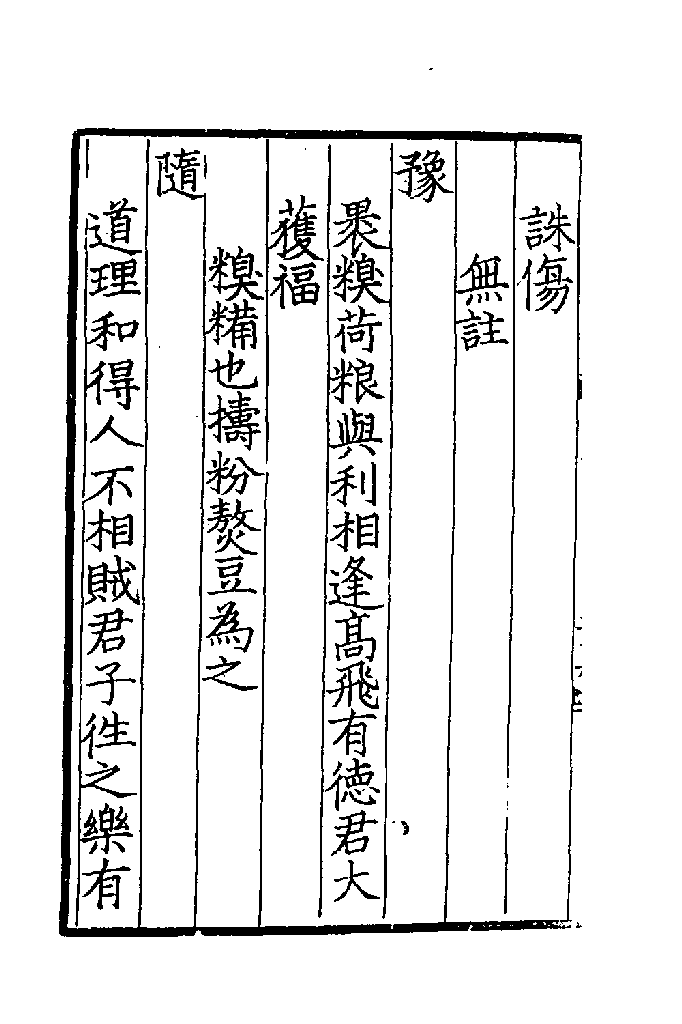 誅傷
無註
豫
褁糗荷粮與利相逢髙飛有德君大
獲福
糗糒也擣粉熬豆為之
隨
道理和得人不相賊君子徃之樂有